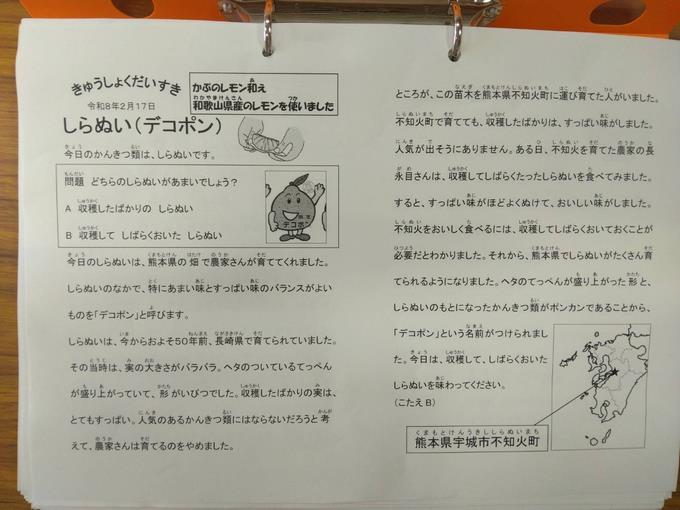 きゅうしょくだいすき
かぶのレモン和え
和歌山県産のレモンを使いました
令和8年2月17日
しらぬい（デコポン）
今日のかんきつ類は、しらぬいです。
問題 どちらのしらぬいがあまいでしょう？
A 収穫したばかりの しらぬい
B 収穫して しばらくおいた しらぬい
熊本
デコポン
今日のしらぬいは、熊本県の畑で農家さんが育ててくれました。
しらぬいのなかで、特にあまい味とすっぱい味のバランスがよい
ものを「デコポン」と呼びます。
しらぬいは、今からおよそ50年前、長崎県で育てられていました。
その当時は、実の大きさがバラバラ。ヘタのついているてっぺん
が盛り上がっていて、形がいびつでした。収穫したばかりの実は、
とてもすっぱい。人気のあるかんきつ類にはならないだろうと考
えて、農家さんは育てるのをやめました。
ところが、この苗木を熊本県不知火町に運び育てた人がいました。
不知火町で育てても、収穫したばかりは、すっぱい味がしました。
人気が出そうにありません。ある日、不知火を育てた農家の長
永目さんは、収穫してしばらくたったしらぬいを食べてみました。
すると、すっぱい味がほどよくぬけて、おいしい味がしました。
不知火をおいしく食べるには、収穫してしばらくおいておくことが
必要だとわかりました。それから、熊本県でしらぬいがたくさん育
てられるようになりました。ヘタのてっぺんが盛り上がった形と、
しらぬいのもとになったかんきつ類がポンカンであることから、
「デコポン」という名前がつけられまし
た。今日は、収穫して、しばらくおいた
しらぬいを味わってください。
（こたえ B）
熊本県宇城市不知火町